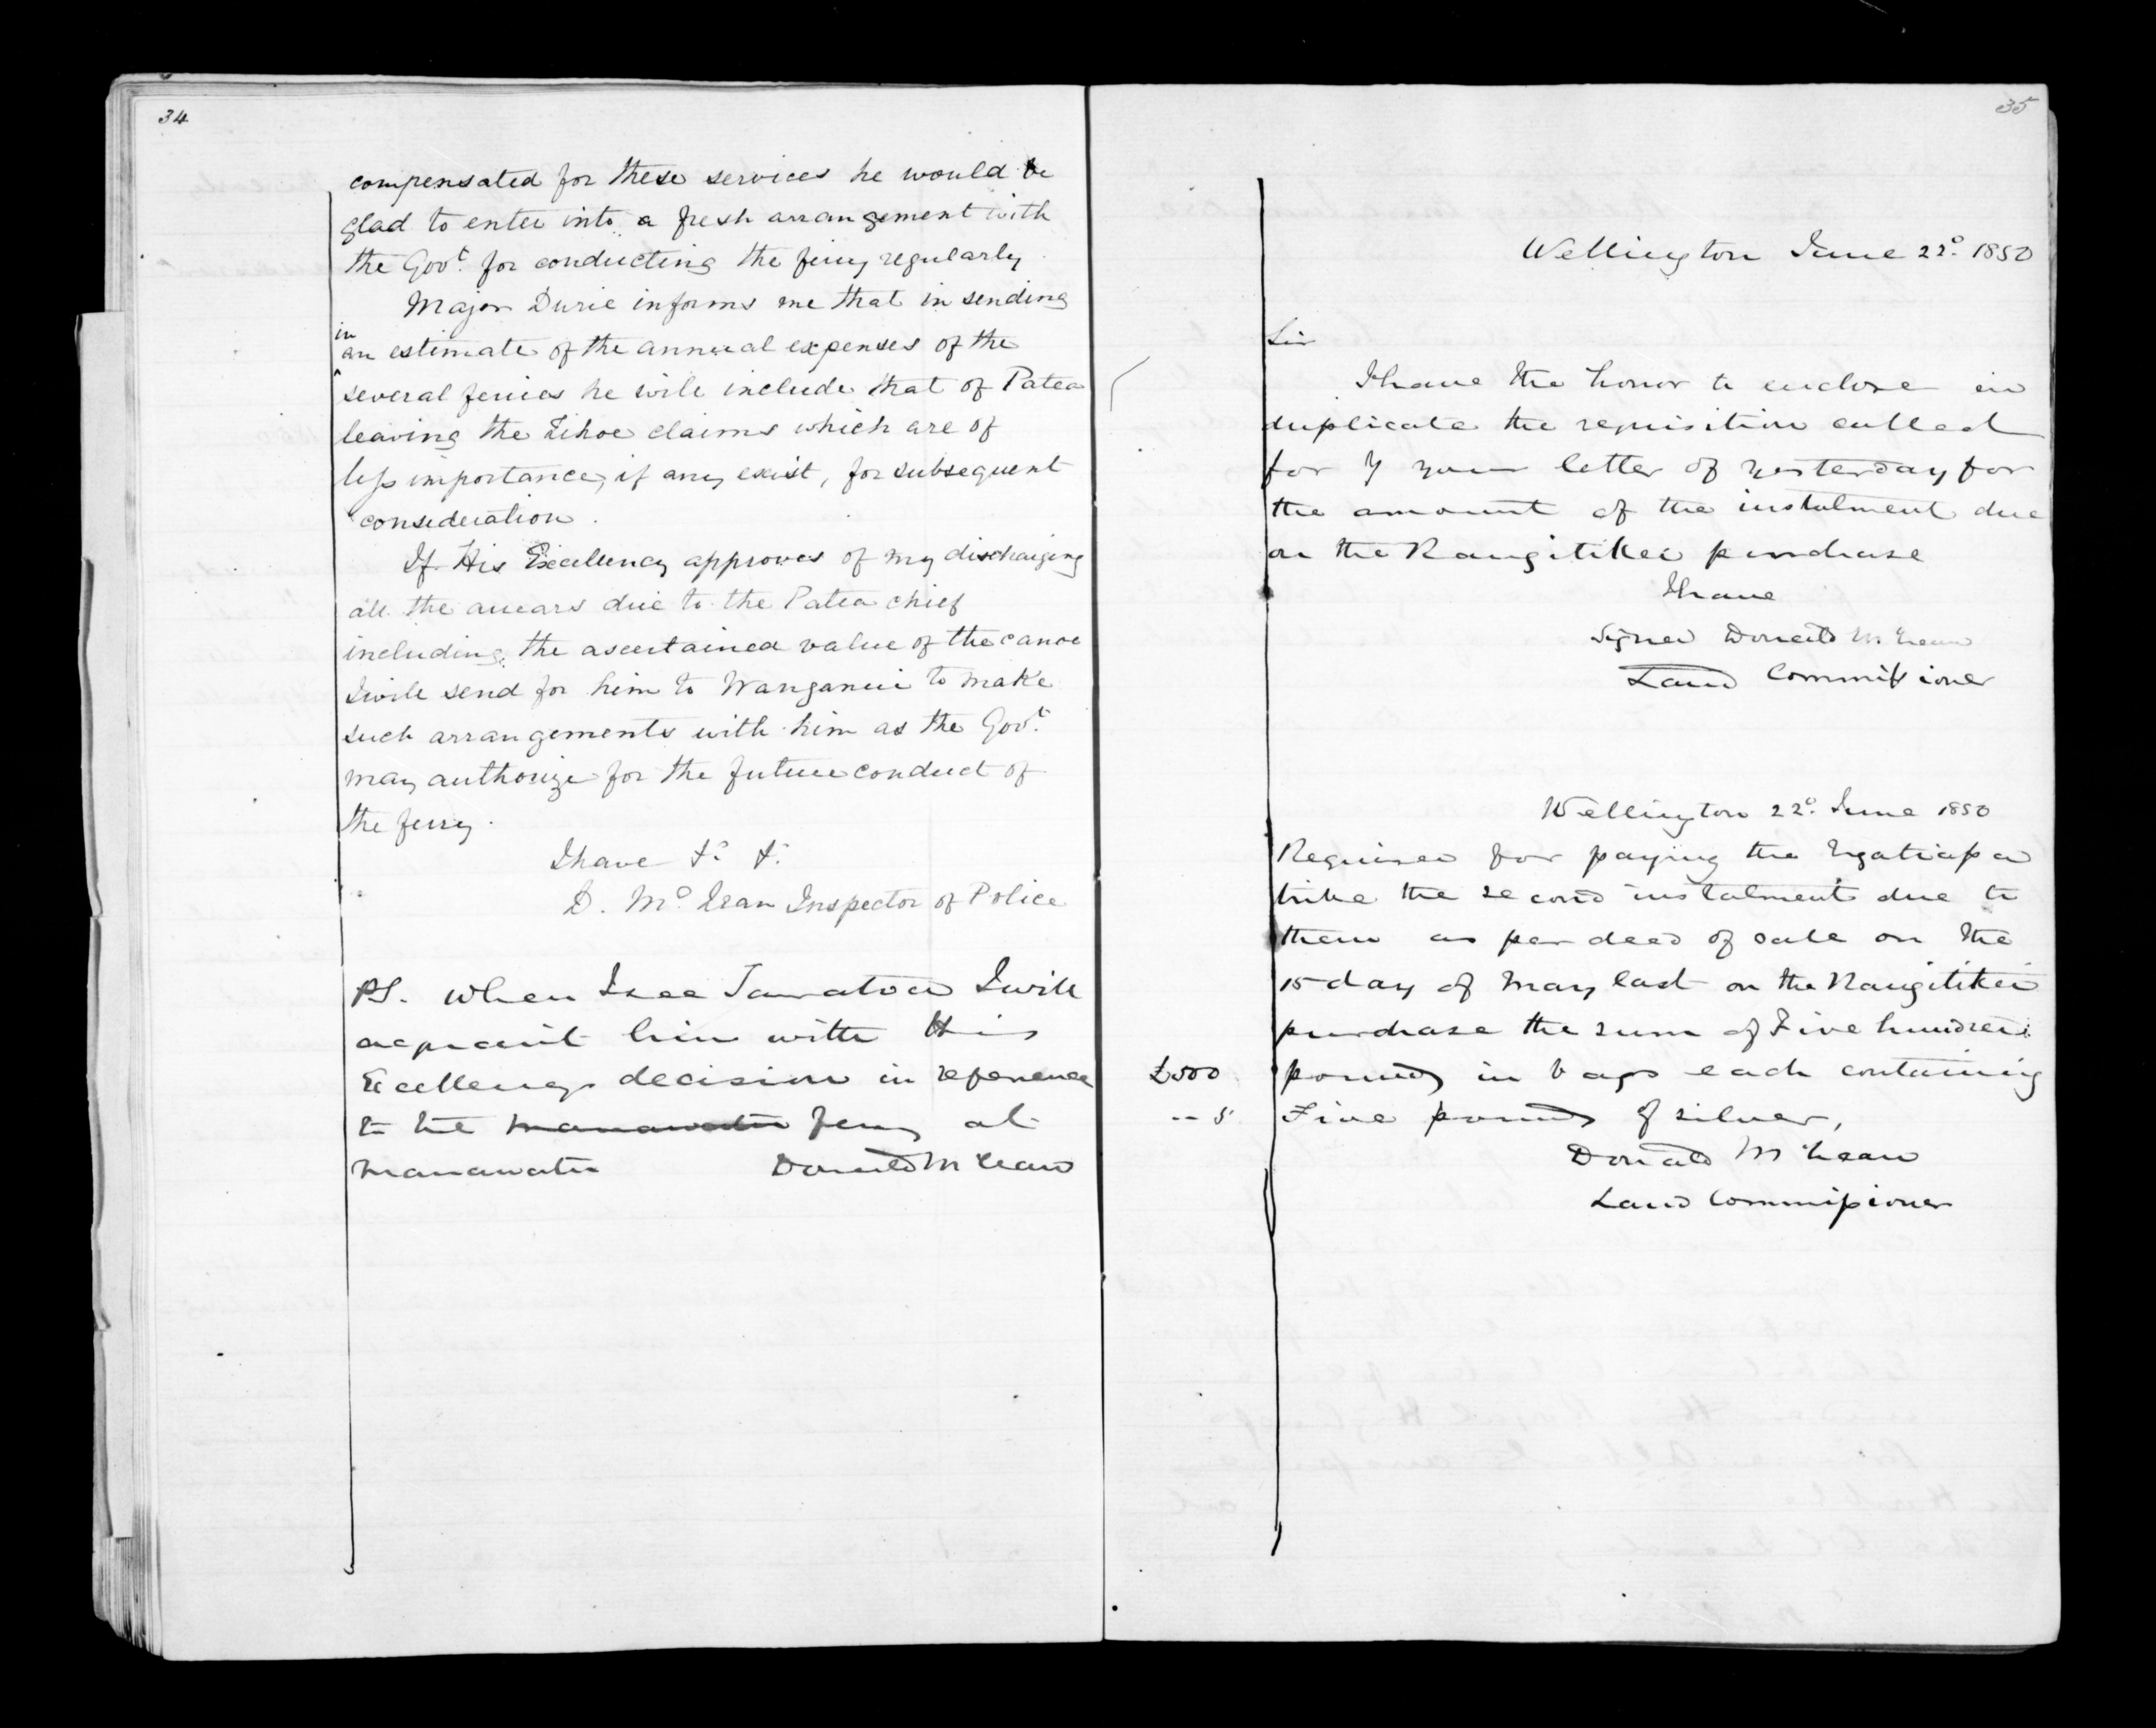 34
compensated for these services he would be
glad to enter into a fresh arrangement with
the Govt. for conducting the ferry regularly
Major Durie informs me that in sending
in
an estimate of the annual expenses of the
several ferries he will include that of Patea
leaving the Tihoe claims which are of
less importance, if any exist, for subsequent
consideration.
If His Excellency approves of my discharging
all the arrears due to the Patea chief
including the ascertained value of the canoe
I will send for him to Wanganui to make
such arrangements with him as the Govt.
may authorize for the future conduct of
the ferry.
I have &c &c
D. McLean Inspector of Police
PS. When I see Tamatoa I will
acquaint him with His
Excellency's decision in reference
to the manawatu ferry at
manawatu Donald McLean
35
Wellington June 22d. 1850
Sir
I have the honor to enclose in
duplicate the requisition called
for by your letter of yesterday for
the amount of the instalment due
on the Rangitikei purchase
I have
Signed Donald McLean
Land Commissioner
Wellington 22d. June 1850
Required for paying the Ngatiapa
tribe the second instalment due to
them as per deed of sale on the
15 day of May last on the Rangitikei
purchase the sum of Five hundred
£500 pounds in bags each containing
-- 5 Five pounds of silver,
Donald McLean
Land Commissioner